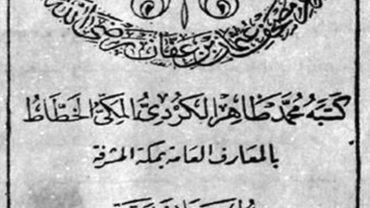 عثمان بن عفان رضي الله
كتبه محمد طاهر الكردي المكي الخطاط
بالمعارف العامة بمكة المشرفة